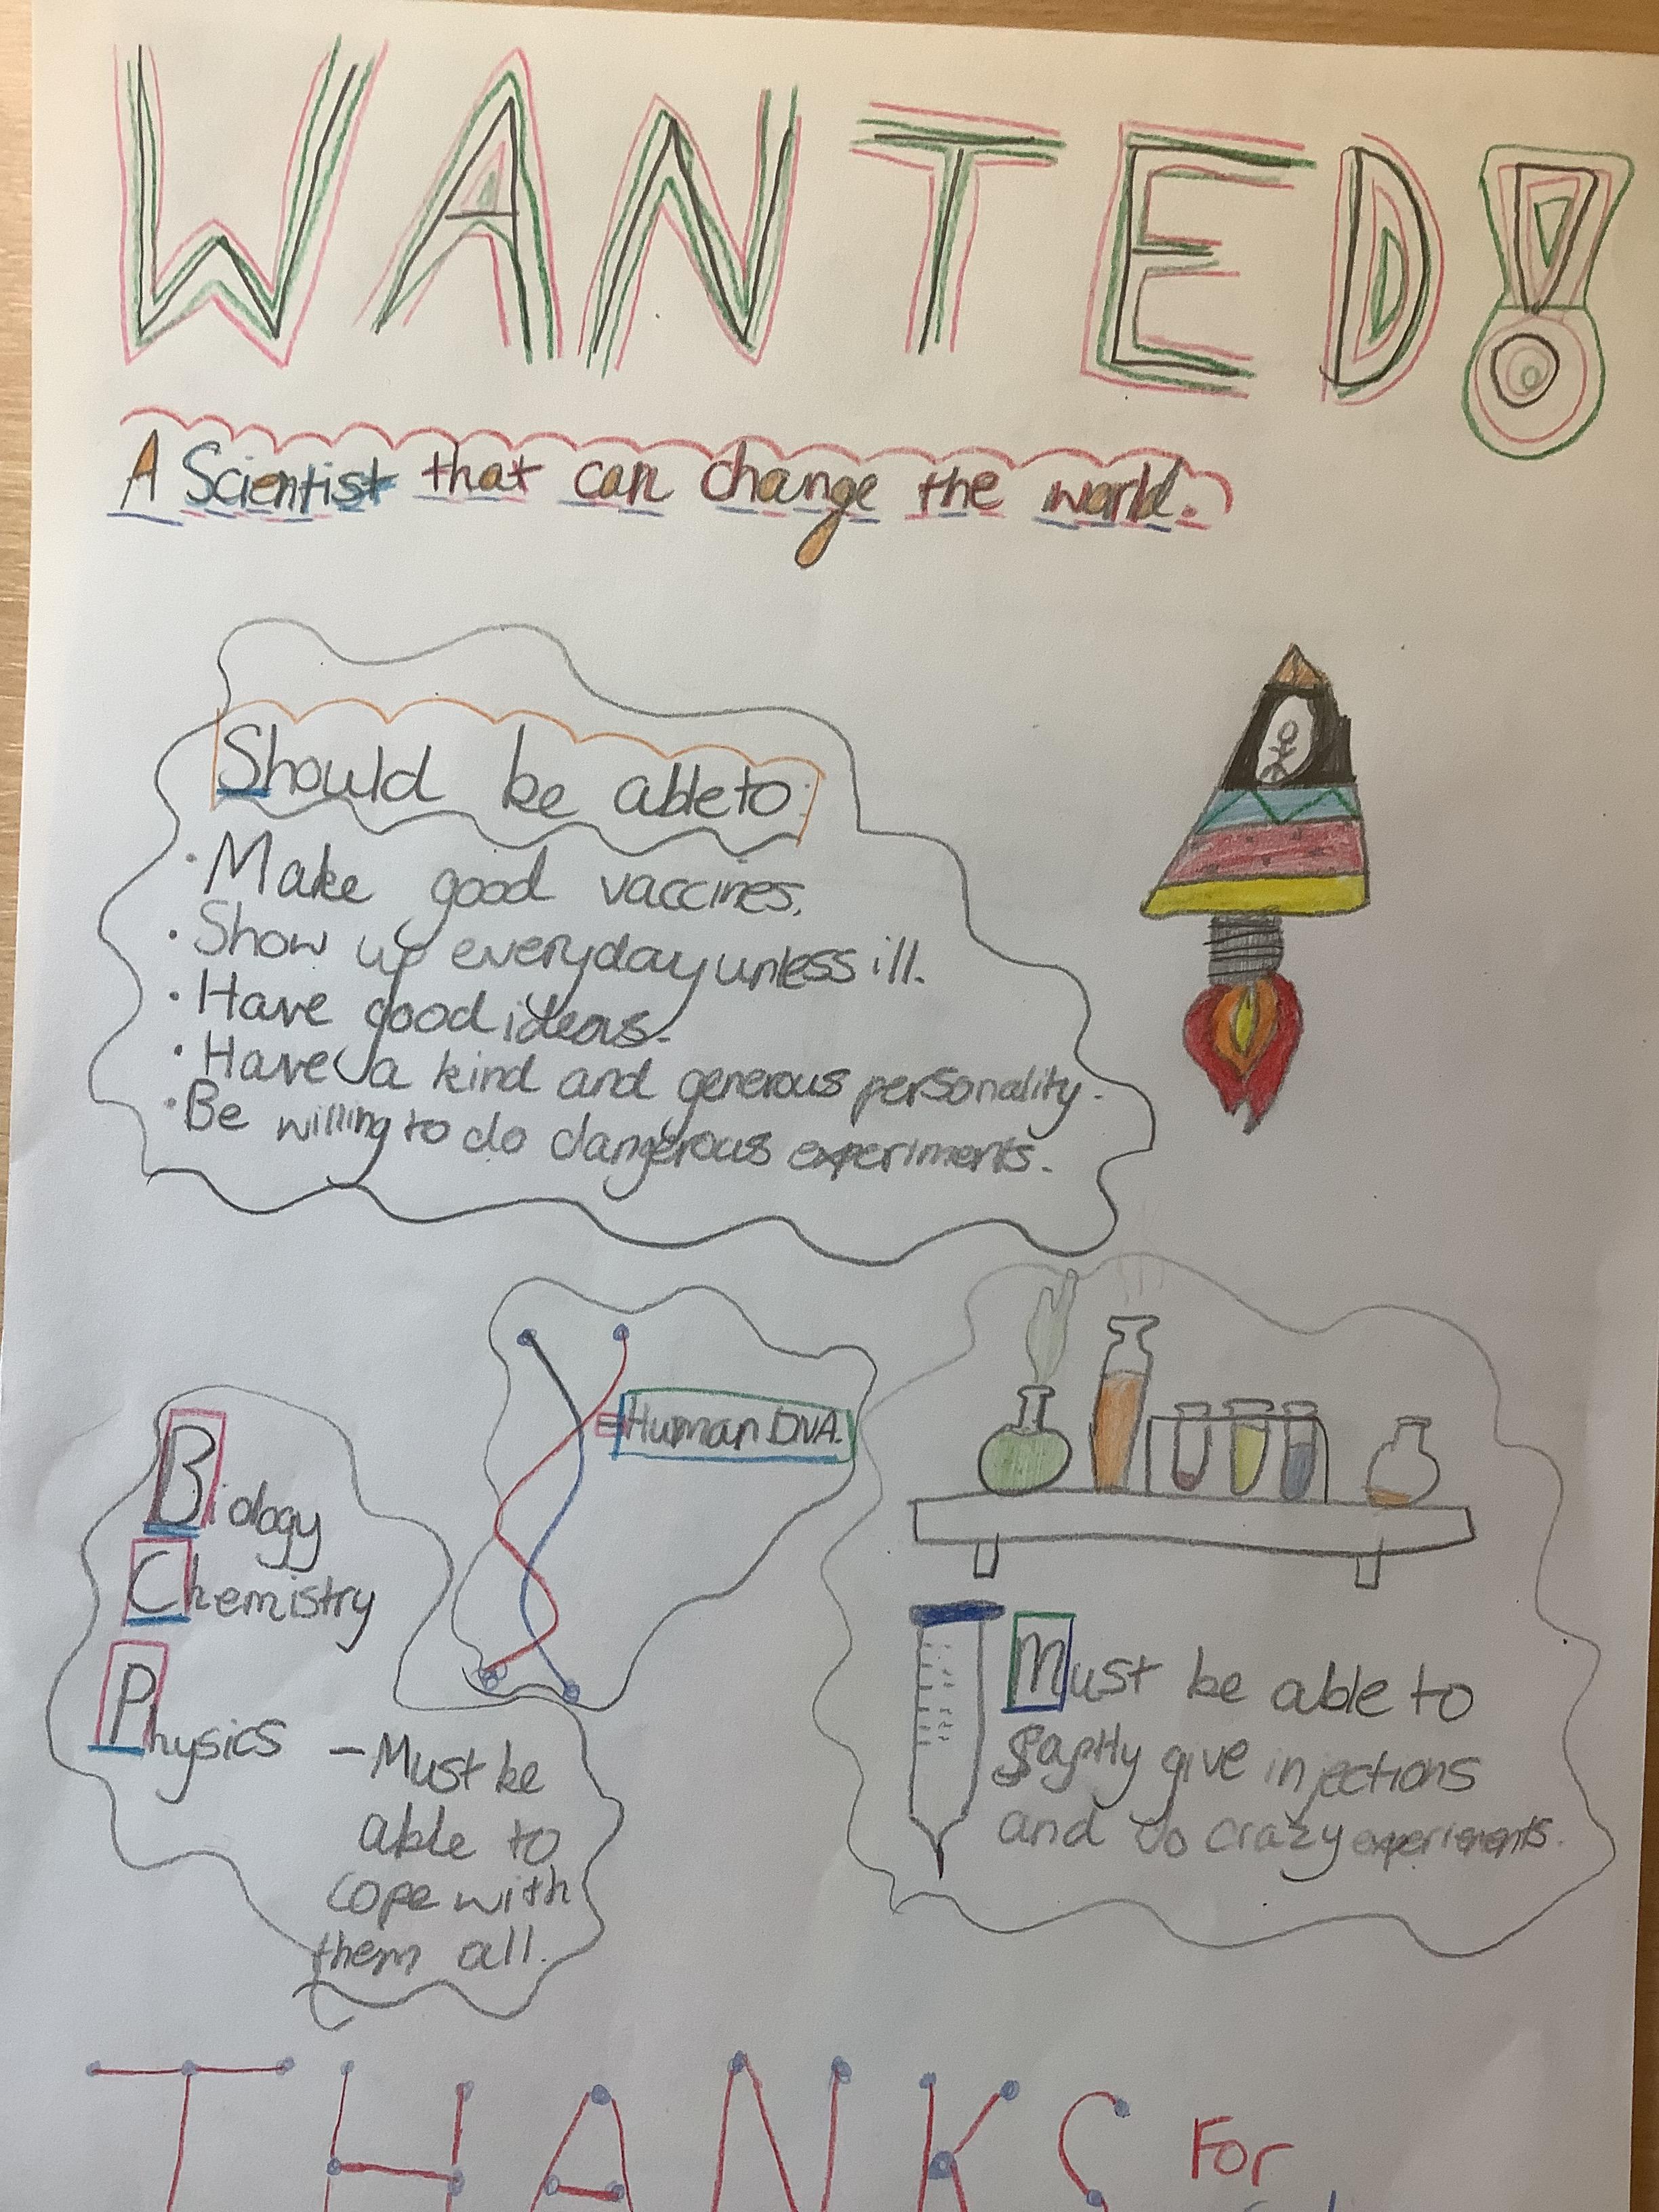 WANTED!
A Scientist that can change the world.
Should be able to:
· Make good vaccines.
· Show up everyday unless ill.
· Have good ideas.
· Have a kind and generous personality.
· Be willing to do dangerous experiments.
= Human DNA.
Biology
Chemistry
Physics - Must be
able to
cope with
them all.
Must be able to
give injections
and do crazy experiments.
THANKS For